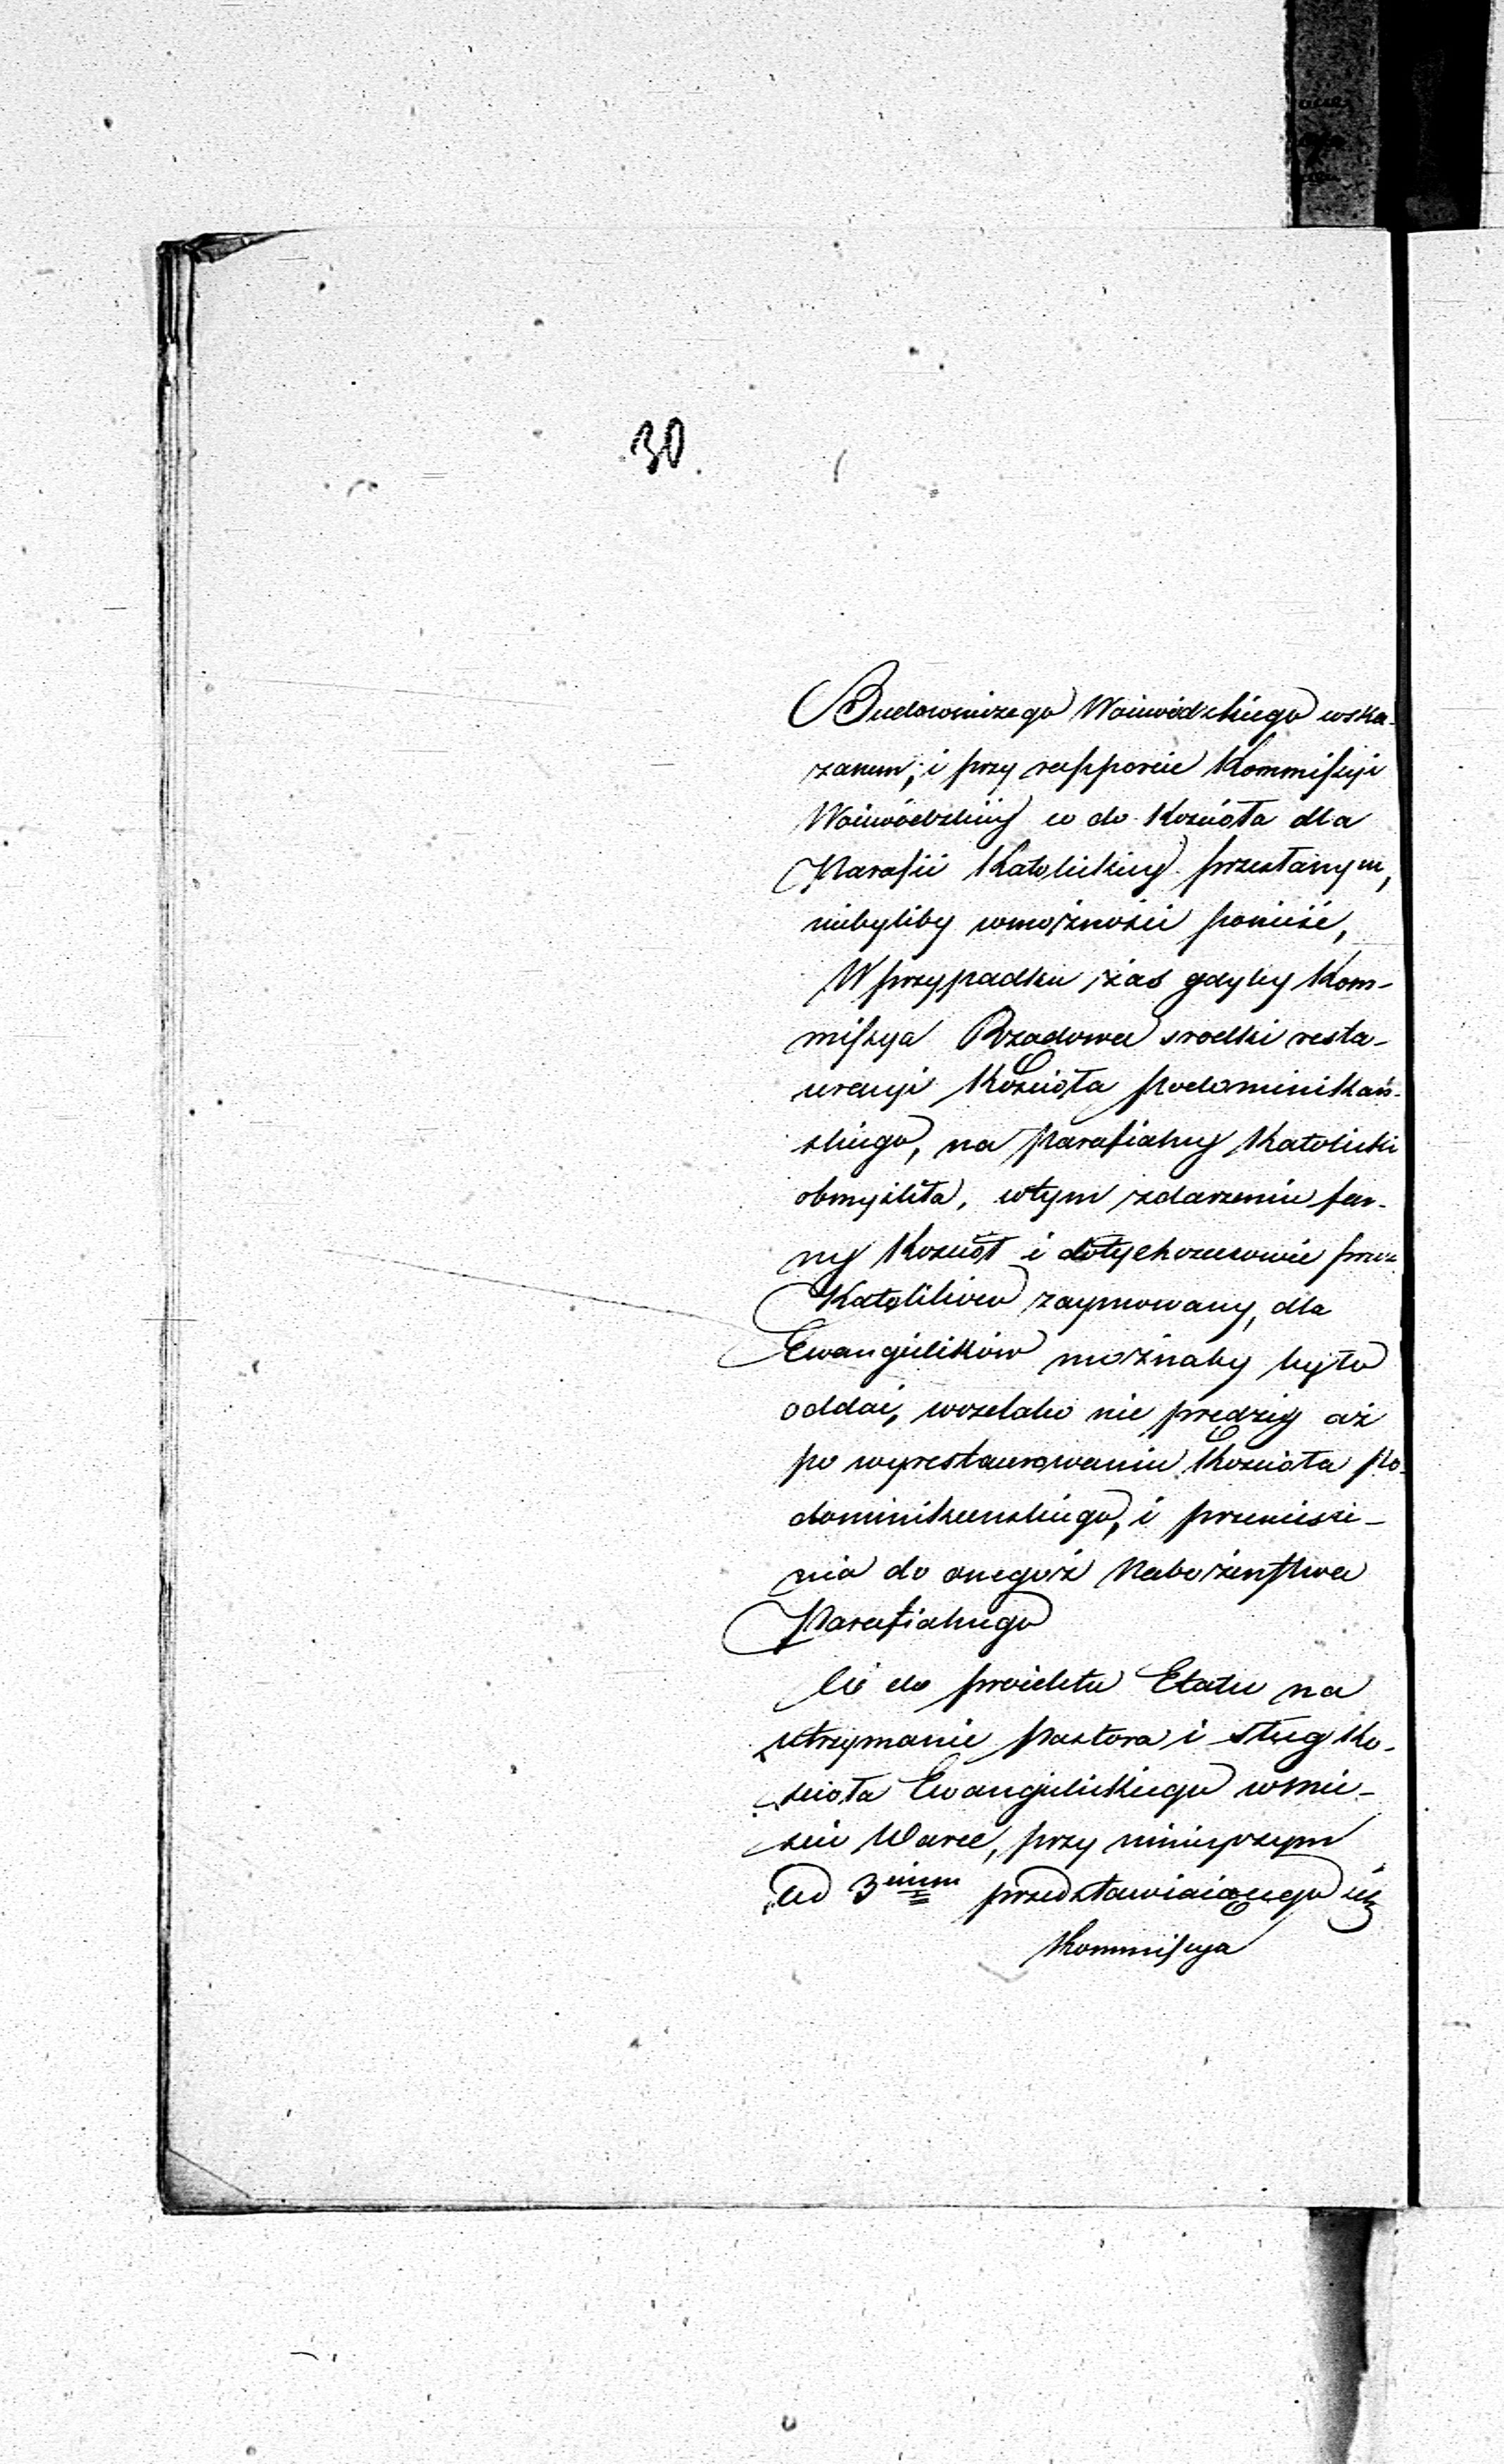 30.
Budowniczego Woiewódzkiego wska-
zanem; i przy rapporcie Kommissyi
Woiewódzkiéy co do Kościoła dla
Parafii Katolickiey przesłanym,
niebyliby wmożności ponieść,
W przypadku zaś gdyby Kom-
missya Rządowa srodki resta-
uracyi Kościoła podominikań-
skiego, na Parafialny Katolicki
obmyśliła, wtym zdarzeniu far-
ny Kościół i dotychczasowie przez
Katolików zaymowany, dla
Ewangielików możnaby było
oddać, wszelako nie prędzey aż
po wyrestaurowaniu Kościoła po-
dominikanskiego, i przeniesie-
nia do onegoż Nabożeństwa
Parafialnego
Co do proiektu Etatu na
utrzymanie pastora i sług Ko-
ścioła Ewangielickiego wmie-
scie Warce, przy ninieyszym
ad 3<sup>inum</sup> przedstawiaiącego się
Kommissya